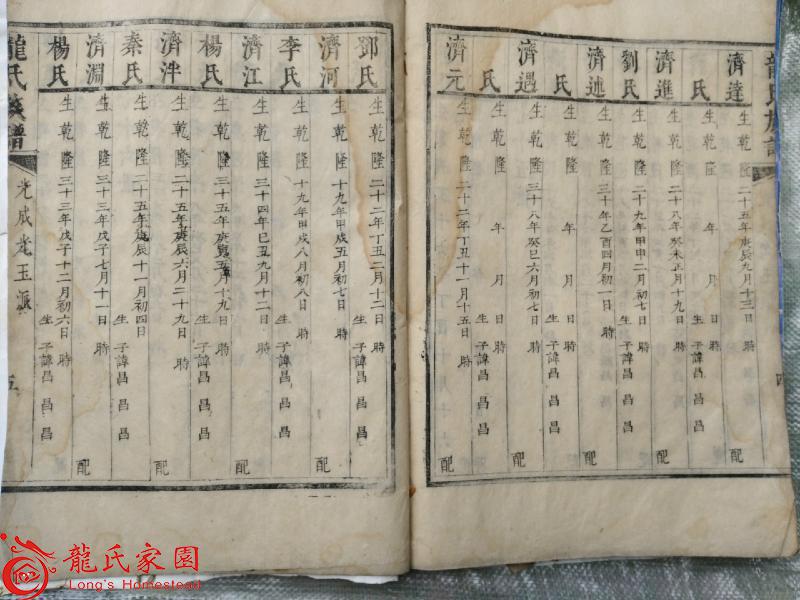 龍氏族譜
四
濟達 生乾隆二十五年庚辰九月十三日時 配
氏 生乾隆 年 月 日時 生子諱昌昌昌
濟進 生乾隆二十八年癸未正月十九日時 配
劉氏 生乾隆二十九年甲申二月初七日時 生子諱昌昌昌
濟述 生乾隆三十年乙酉四月初一日時 配
氏 生乾隆 年 月 日時 生子諱昌昌昌
濟遇 生乾隆三十八年癸巳六月初七日時 配
氏 生乾隆 年 月 日時 生子諱昌昌昌
濟元 生乾隆二十二年丁丑十一月十五日時 配
鄧氏 生乾隆二十二年丁丑二月十二日時 生子諱昌昌昌
濟河 生乾隆十九年甲戌五月初七日時 配
李氏 生乾隆十九年甲戌八月初八日時 生子諱昌昌昌
濟江 生乾隆三十四年己丑九月十二日時 配
楊氏 生乾隆三十五年庚寅五月十九日時 生子諱昌昌昌
濟泮 生乾隆二十五年庚辰六月二十九日時 配
秦氏 生乾隆二十五年庚辰十一月初四日時 生子諱昌昌昌
濟淵 生乾隆三十三年戊子七月十一日時 配
楊氏 生乾隆三十三年戊子十二月初六日時 生子諱昌昌昌
龍氏族譜
光成老玉派
五
龍氏家園
Long's Homestead